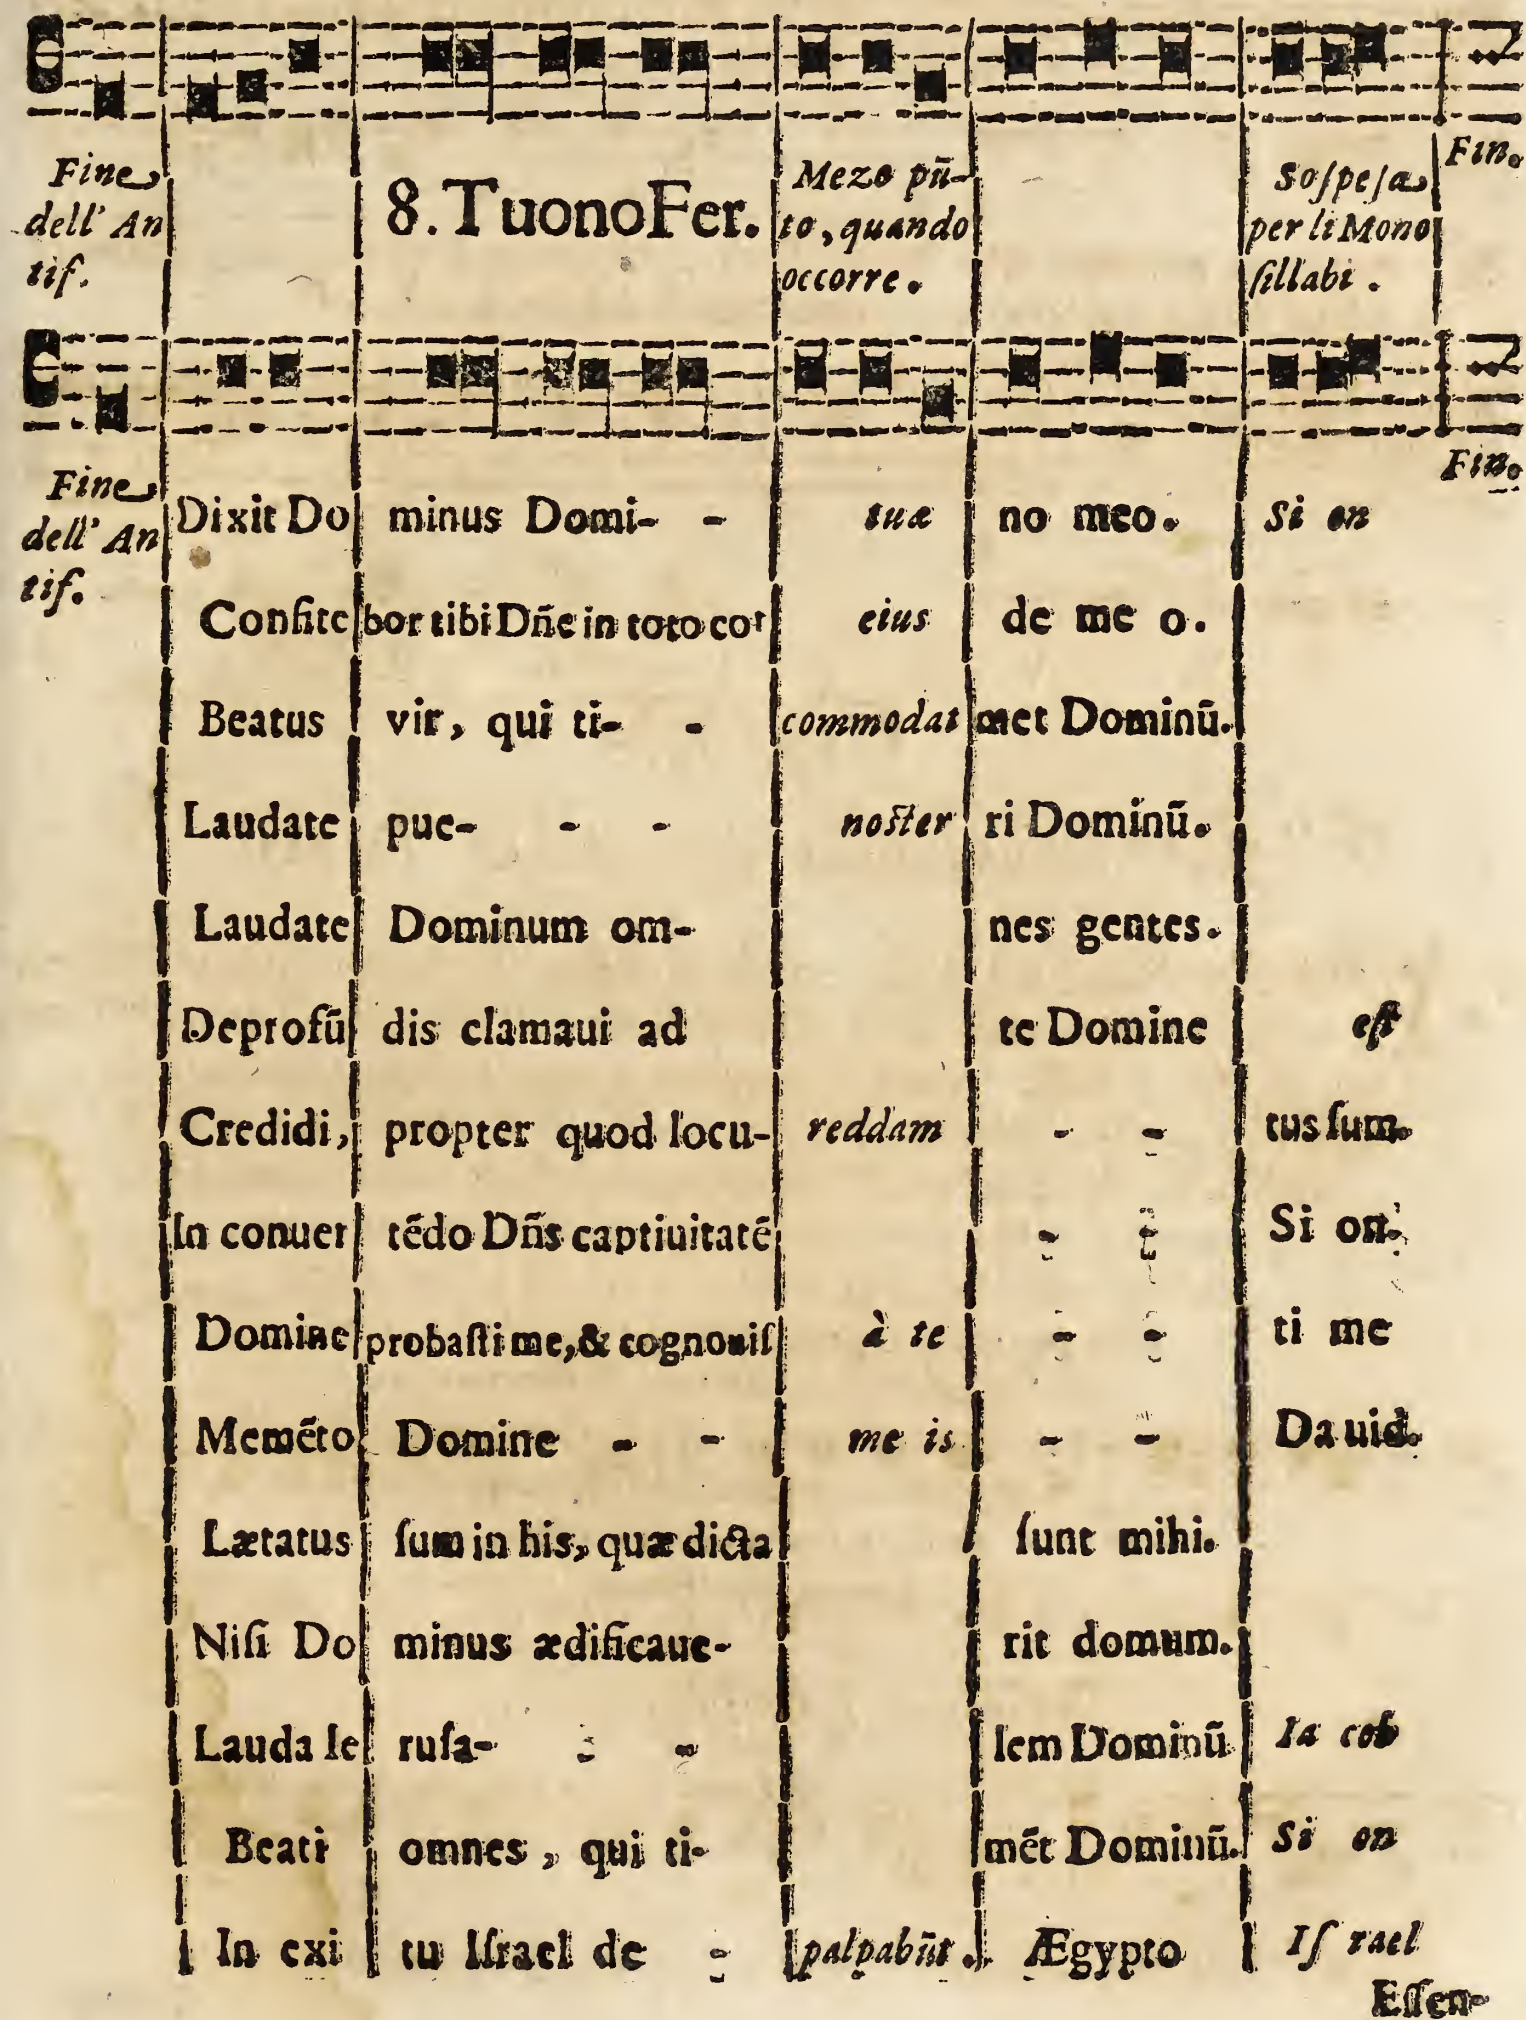 Fine dell' An tif. 8. Tuono Fer. Mezo pũ- to, quando occorre. Soſpeſa per li Mono ſillabi. Fin.
Fine dell' An tif. Fin.
Dixit Do minus Domi- - tuæ no meo. Si on
Confite bor tibi Dñe in toto cor eius de me o.
Beatus vir, qui ti- - commodat met Dominū.
Laudate pue- - - noſter ri Dominū.
Laudate Dominum om- nes gentes.
Deprofũ dis clamaui ad te Domine eſt
Credidi, propter quod locu- reddam - - tus ſum.
In conuer tẽdo Dñs captiuitatẽ - - Si on.
Domine probaſti me, & cognouiſ à te - - ti me
Memẽto Domine - - me is - - Da uid.
Lætatus ſum in his, quæ dicta ſunt mihi.
Niſi Do minus ædificaue- rit domum.
Lauda Ie ruſa- - - lem Dominũ Ia cob
Beati omnes, qui ti- mẽt Dominũ. Si on
In exi tu Iſrael de - palpabũt. Ægypto Iſ rael
Eſſen-